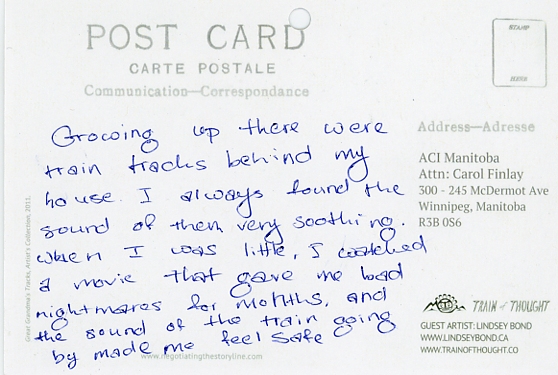 POST CARD
CARTE POSTALE
Communication—Correspondance
STAMP
Growing up there were
train tracks behind my
house. I always found the
sound of them very soothing.
When I was little, I watched
a movie that gave me bad
nightmares for months, and
the sound of the train going
by made me feel safe
www.negotiatingthestoryline.com
Great Grandma's Tracks, Artist's Collection, 2015.
Address—Adresse
ACI Manitoba
Attn: Carol Finlay
300 - 245 McDermot Ave
Winnipeg, Manitoba
R3B 0S6
TRAIN of THOUGHT
GUEST ARTIST: LINDSEY BOND
WWW.LINDSEYBOND.CA
WWW.TRAINOFTHOUGHT.CO